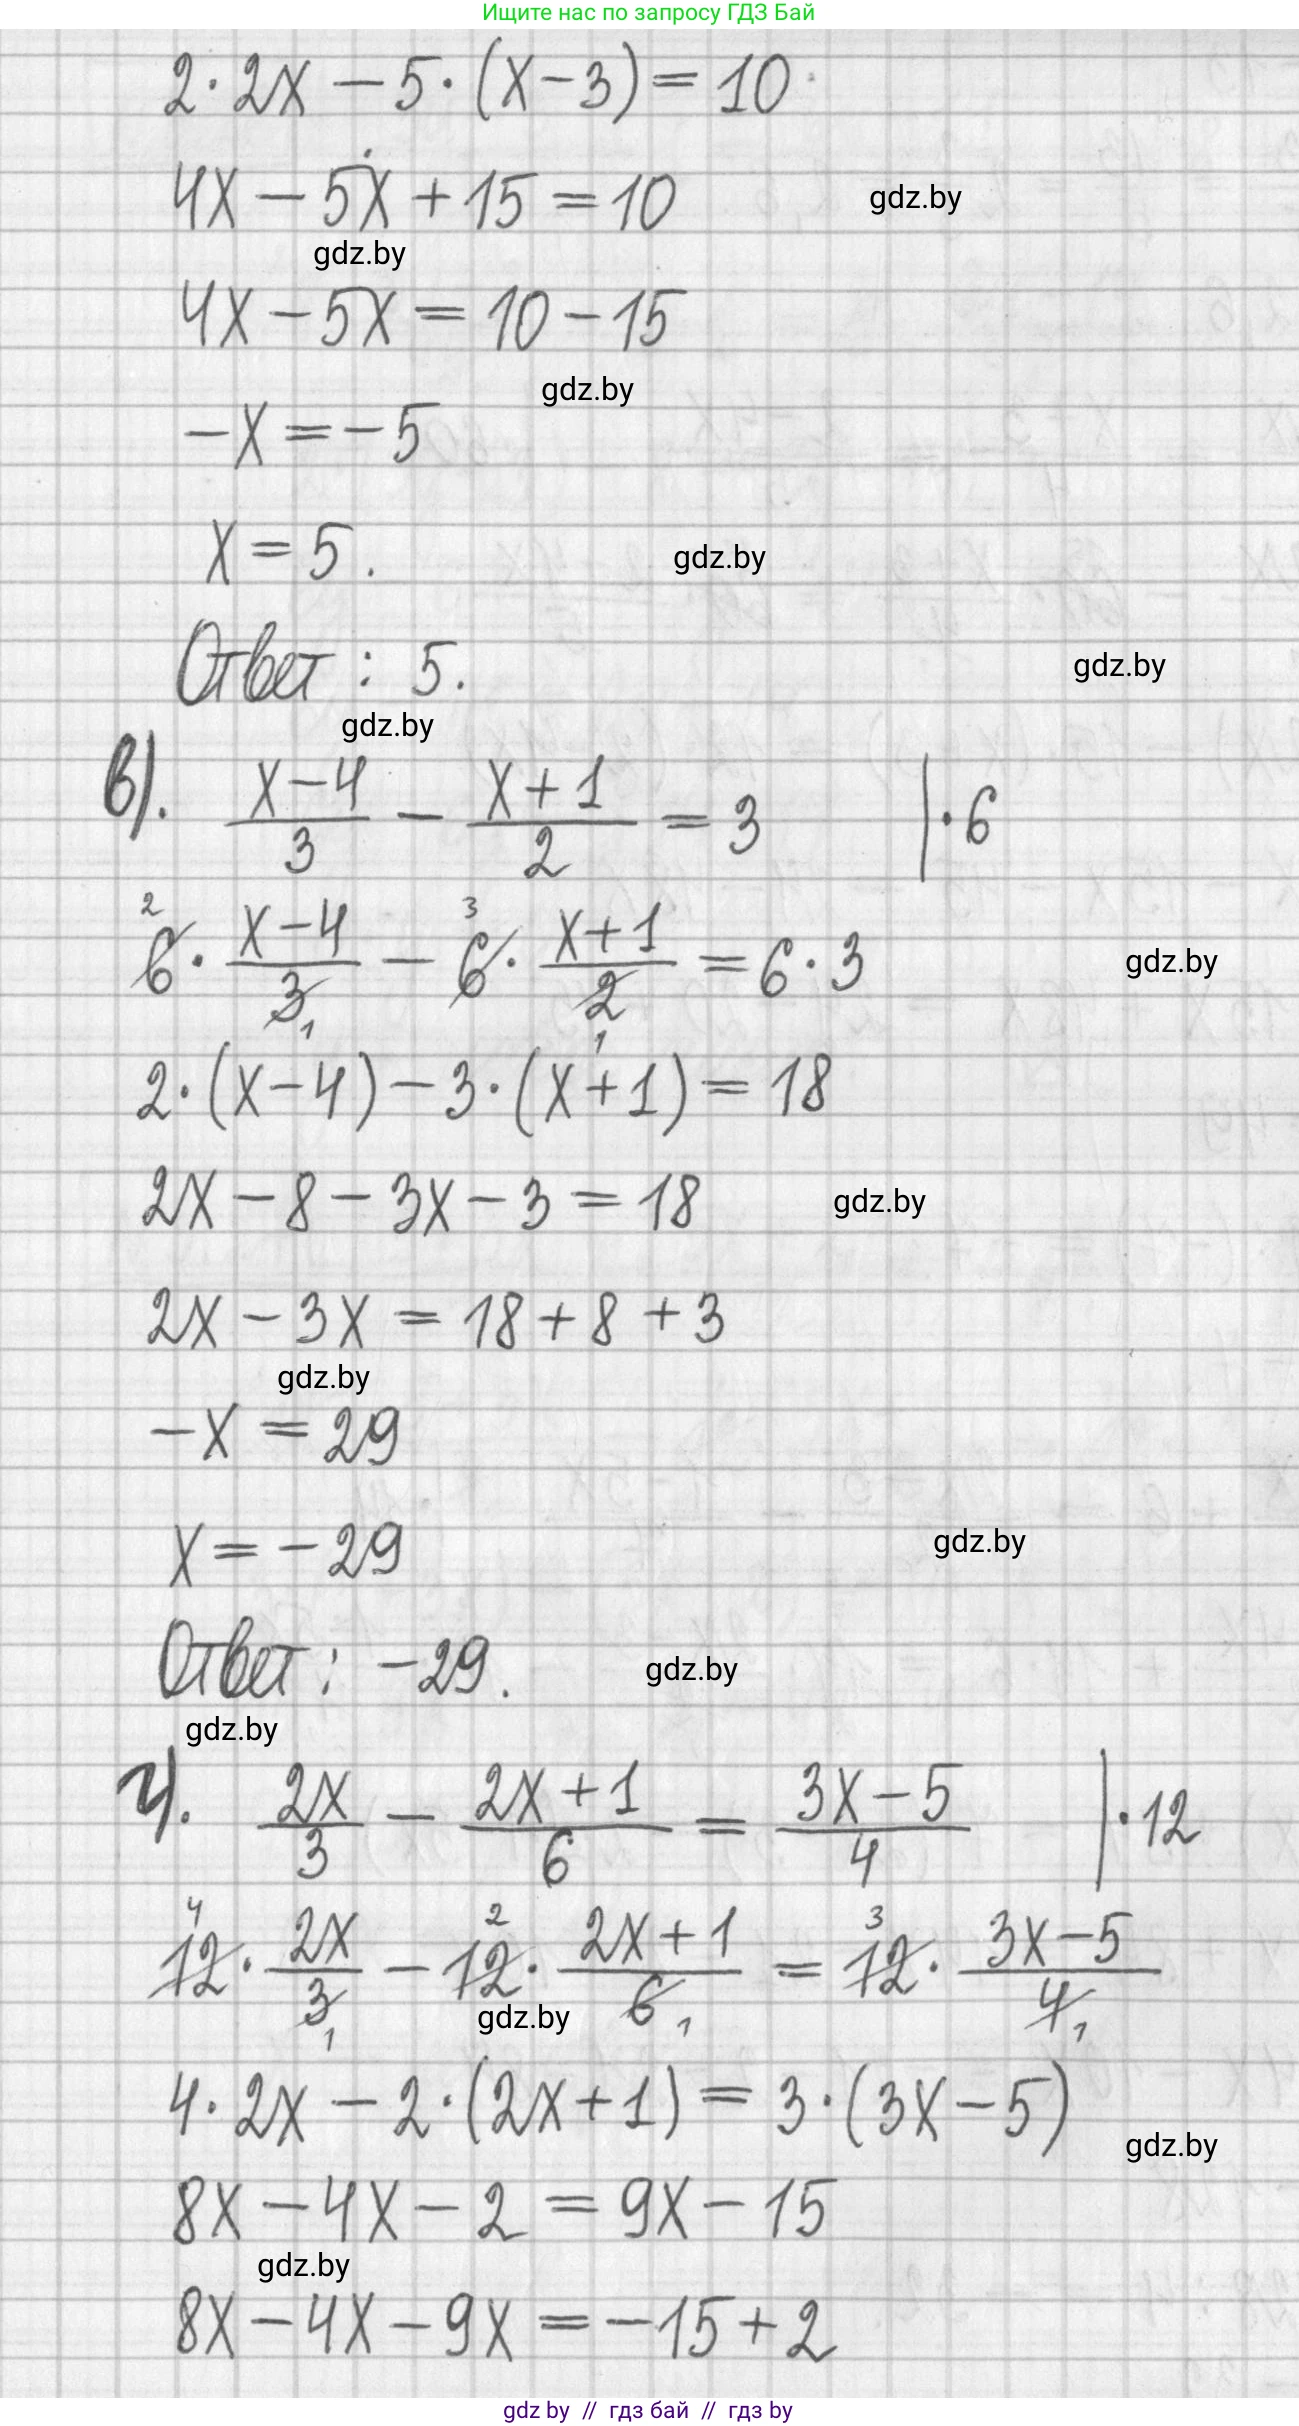 Ищите нас по запросу ГДЗ Бай
2·2x − 5·(x−3) = 10
4x − 5x + 15 = 10
gdz.by
gdz.by
4x − 5x = 10 − 15
gdz.by
−x = −5
x = 5.
gdz.by
Ответ: 5.
gdz.by
gdz.by
в). (x−4)/3 − (x+1)/2 = 3 |·6
2 3
6·(x−4)/3 − 6·(x+1)/2 = 6·3
1 1
gdz.by
2·(x−4) − 3·(x+1) = 18
2x − 8 − 3x − 3 = 18
gdz.by
2x − 3x = 18 + 8 + 3
gdz.by
−x = 29
x = −29
gdz.by
Ответ: −29.
gdz.by
gdz.by
г). 2x/3 − (2x+1)/6 = (3x−5)/4 |·12
4 2 3
12·2x/3 − 12·(2x+1)/6 = 12·(3x−5)/4
1 1 1
gdz.by
4·2x − 2·(2x+1) = 3·(3x−5)
gdz.by
8x − 4x − 2 = 9x − 15
gdz.by
8x − 4x − 9x = −15 + 2
gdz by // гдз бай // гдз by